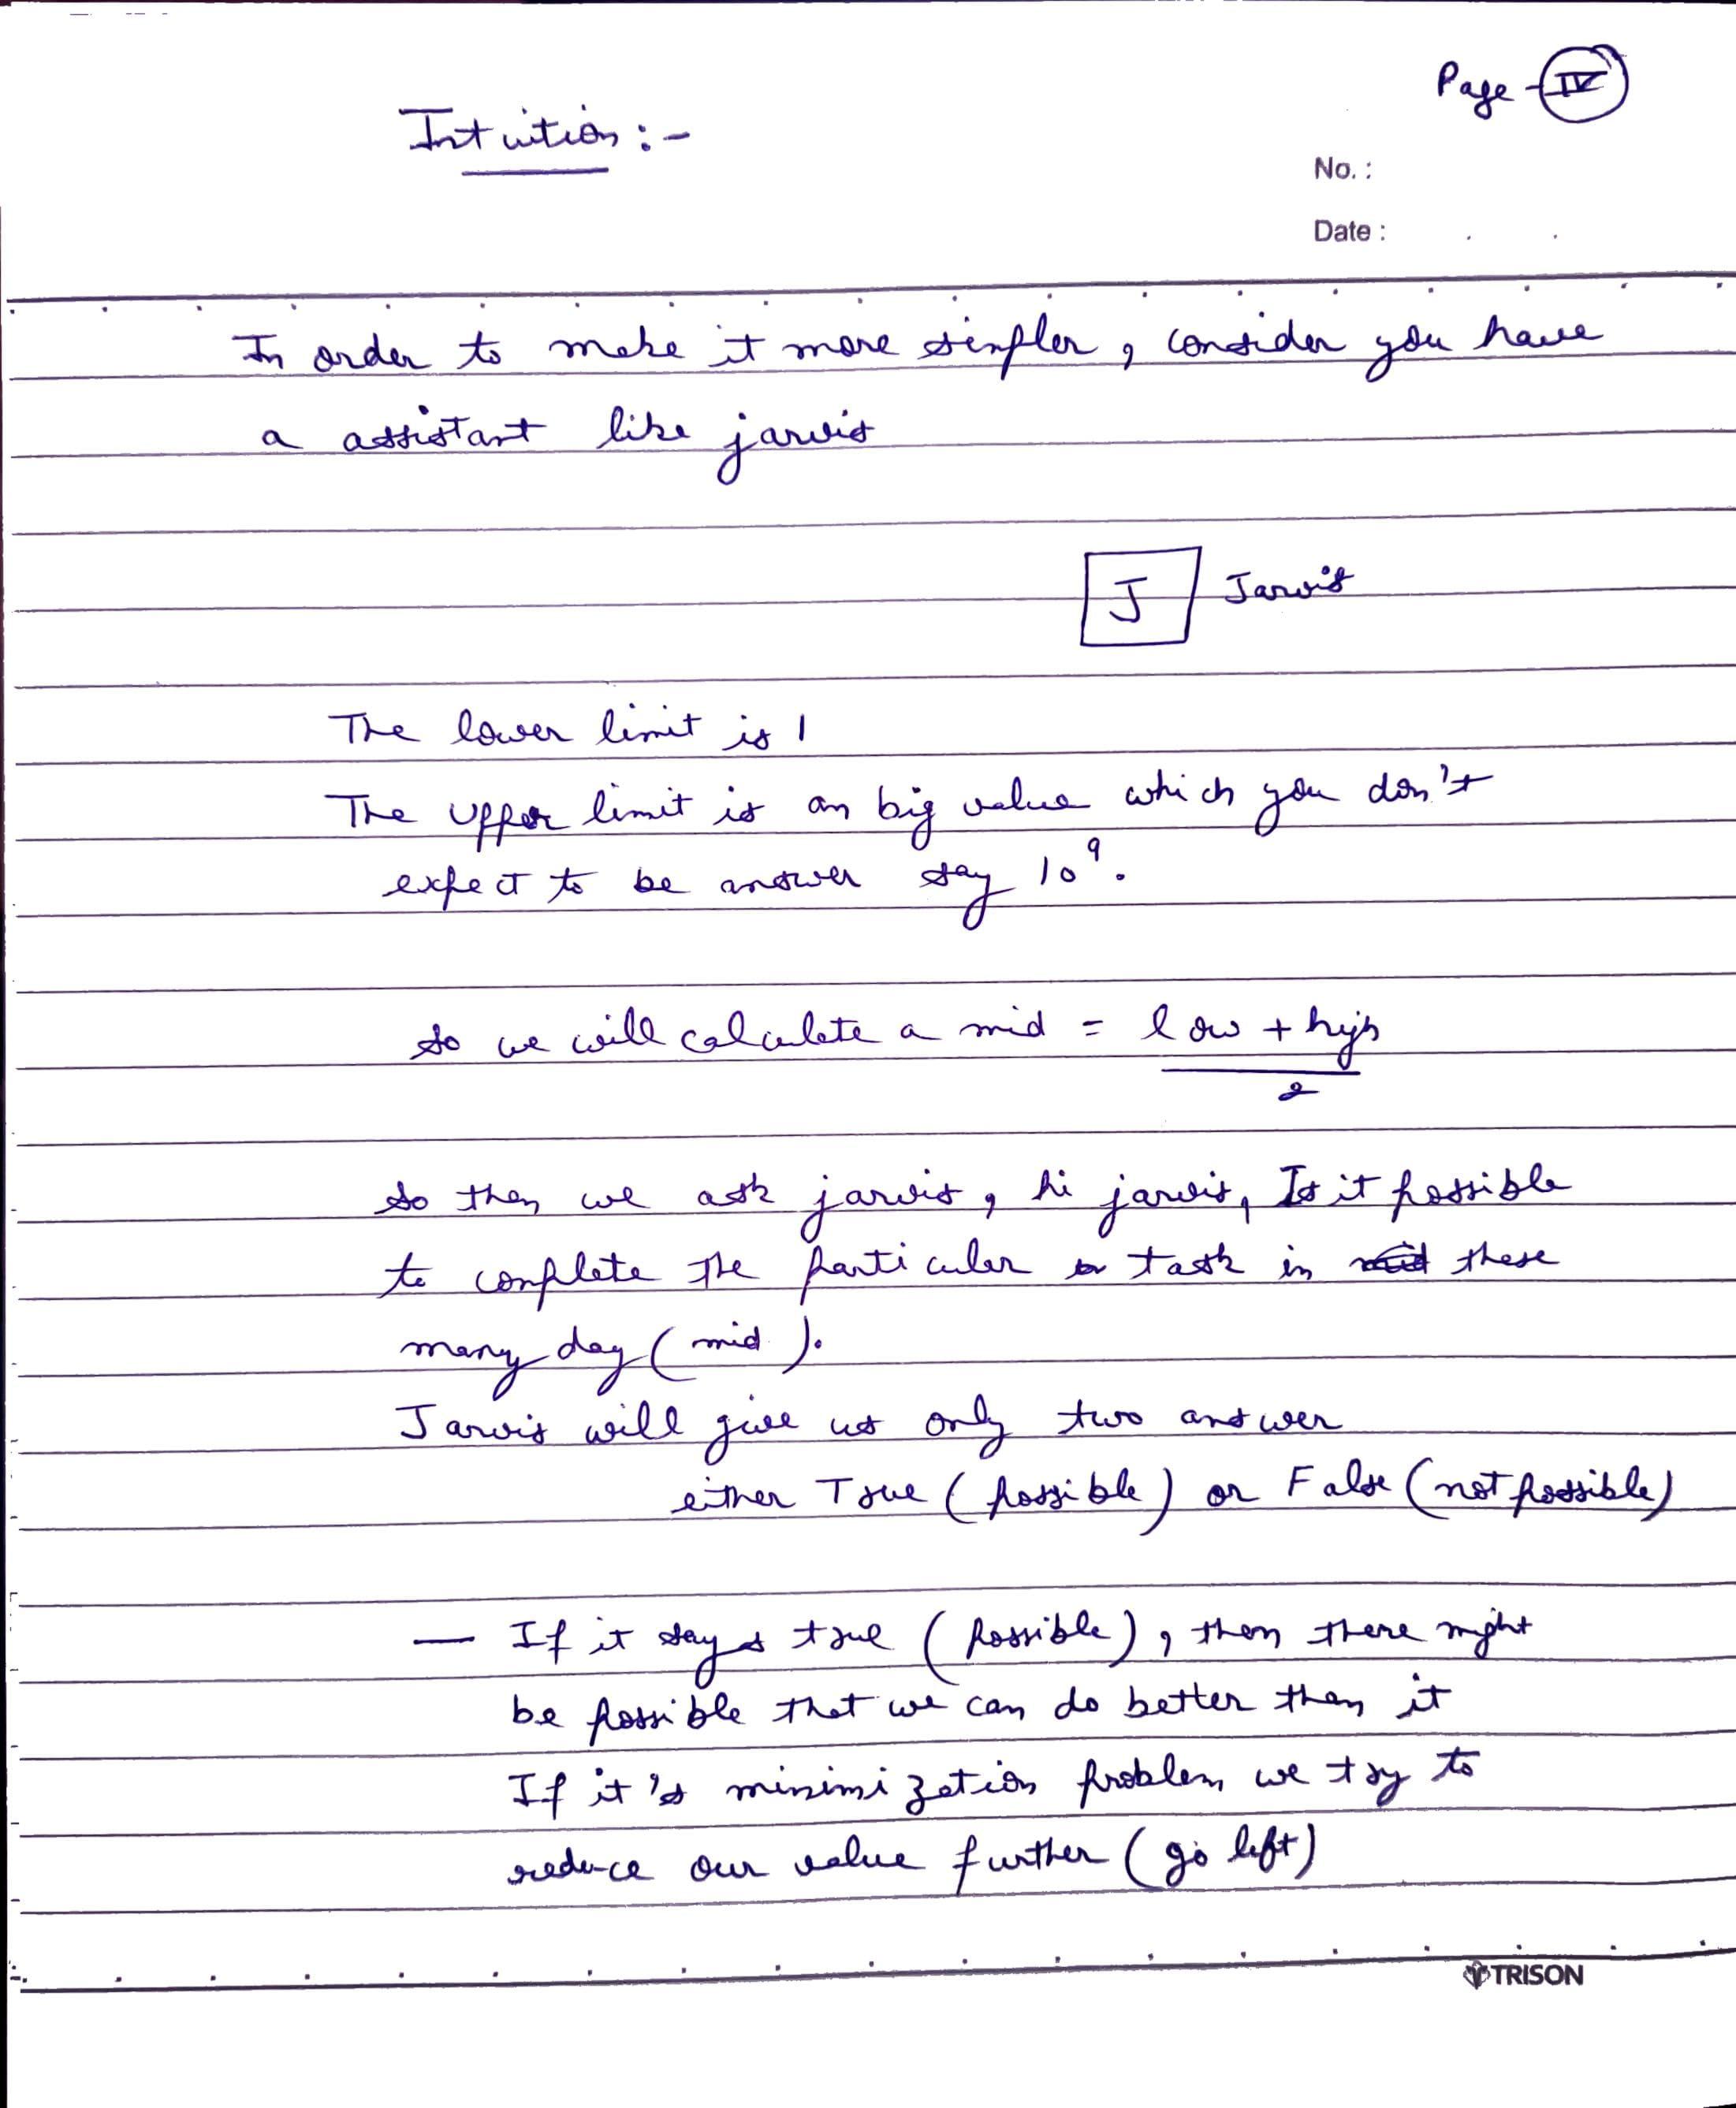 Page - IV
Intuition :-
No. :
Date :
In order to make it more simpler, consider you have
a assistant like jarvis
J Jarvis
The lower limit is 1
The upper limit is an big value which you don't
expect to be answer say 10⁹.
So we will calculate a mid = low + high
2
So then we ask jarvis, hi jarvis, Is it possible
to complete the particular task in these
many day (mid).
Jarvis will give us only two answer
either True (possible) or False (not possible)
— If it says true (possible), then there might
be possible that we can do better then it
If it's minimization problem we try to
reduce our value further (go left)
TRISON